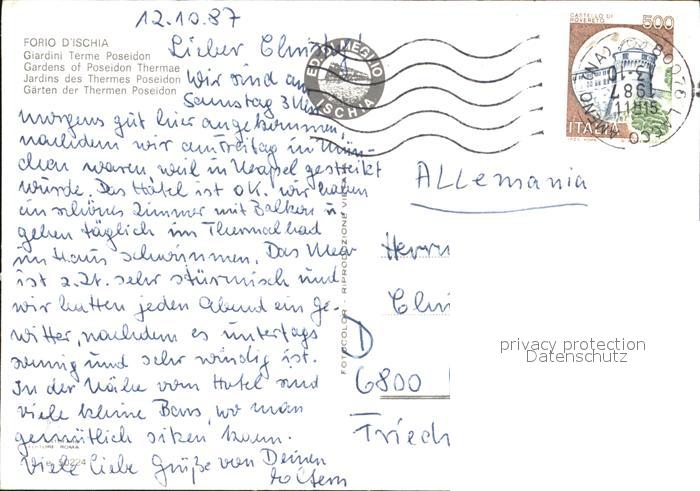 12.10.87
FORIO D'ISCHIA
Giardini Terme Poseidon
Gardens of Poseidon Thermae
Jardins des Thermes Poseidon
Gärten der Thermen Poseidon
Lieber
Wir sind am
Samstag 3 Uhr
morgens gut hier angekommen,
nachdem wir am Freitag in Mün-
chen waren, weil in Neapel gestreikt
wurde. Das Hotel ist OK. wir haben
ein schönes Zimmer mit Balkon u.
gehen täglich im Thermalbad
im Haus schwimmen. Das Meer
ist z.Zt. sehr stürmisch und
wir hatten jeden Abend ein Ge-
witter, nachdem es untertags
sonnig und sehr windig ist.
In der Nähe vom Hotel sind
viele kleine Bars, wo man
gemütlich sitzen kann.
Viele liebe Grüße von Deinen
Eltern
EDIZ. MEGLIO
ISCHIA
FOTOCOLOR - RIPRODUZIONE VIETATA
CASTELLO DI
ROVERETO
500
ITALIA
1987
ALLemania
Herrn
D
6800
Friedr
privacy protection
Datenschutz